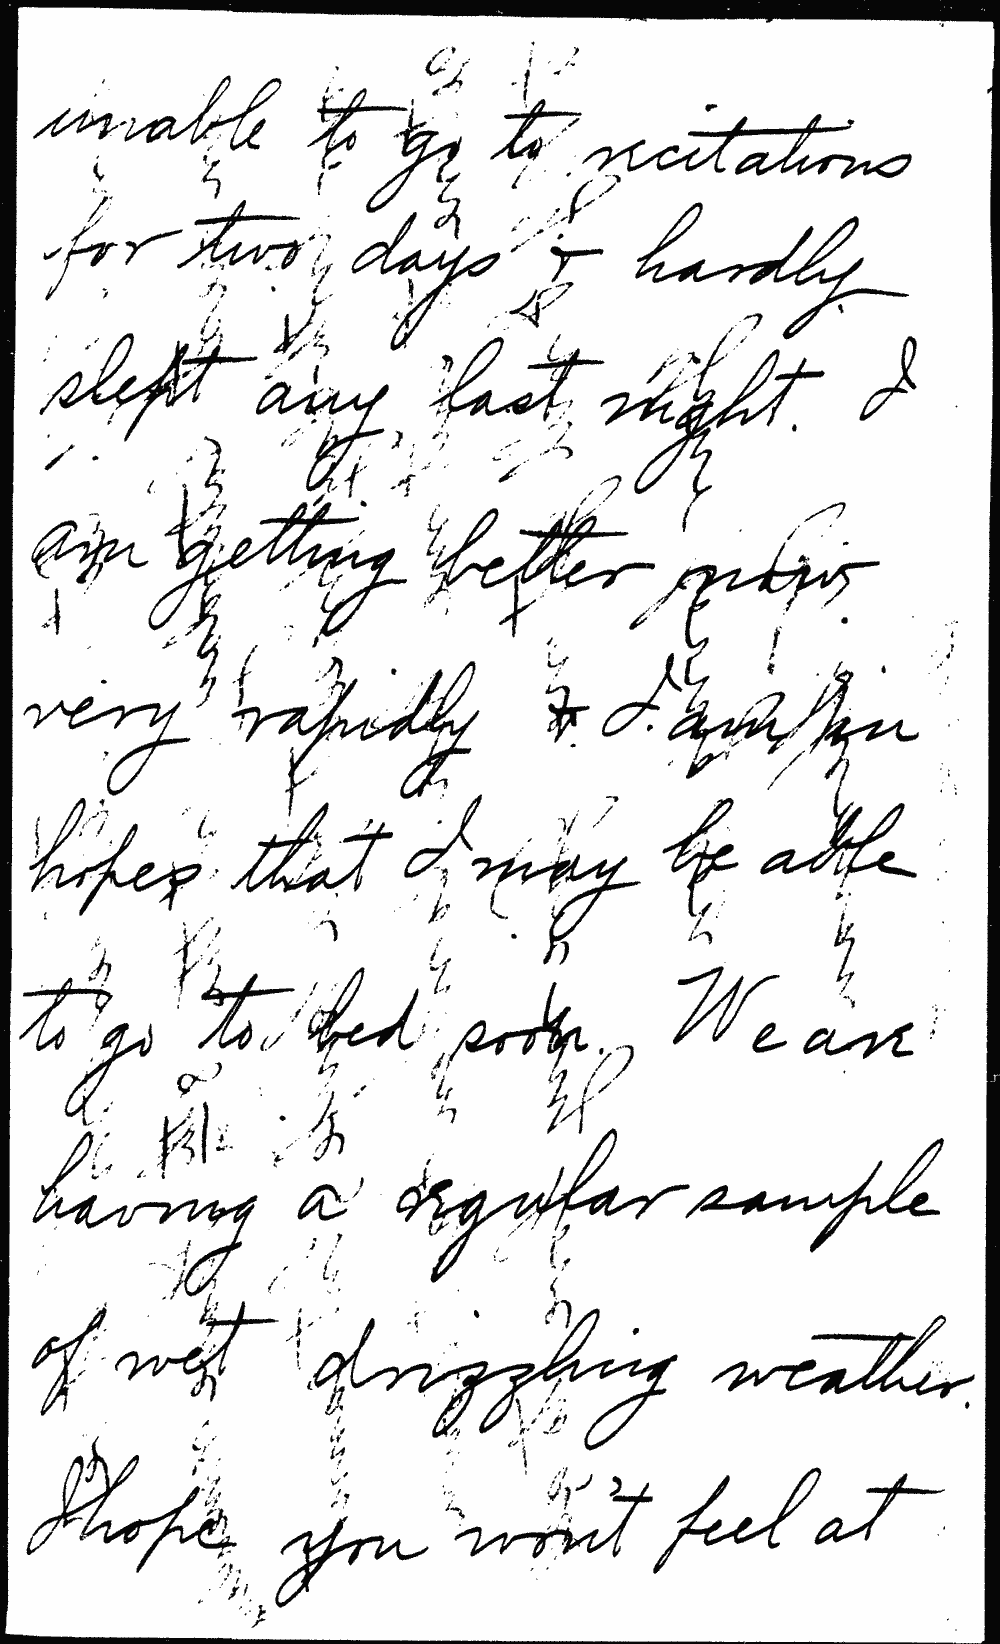 unable to go to recitations
for two days & hardly
slept any last night. I
am getting better now
very rapidly & I am in
hopes that I may be able
to go to bed soon. We are
having a regular sample
of wet drizzling weather.
I hope you won't feel at